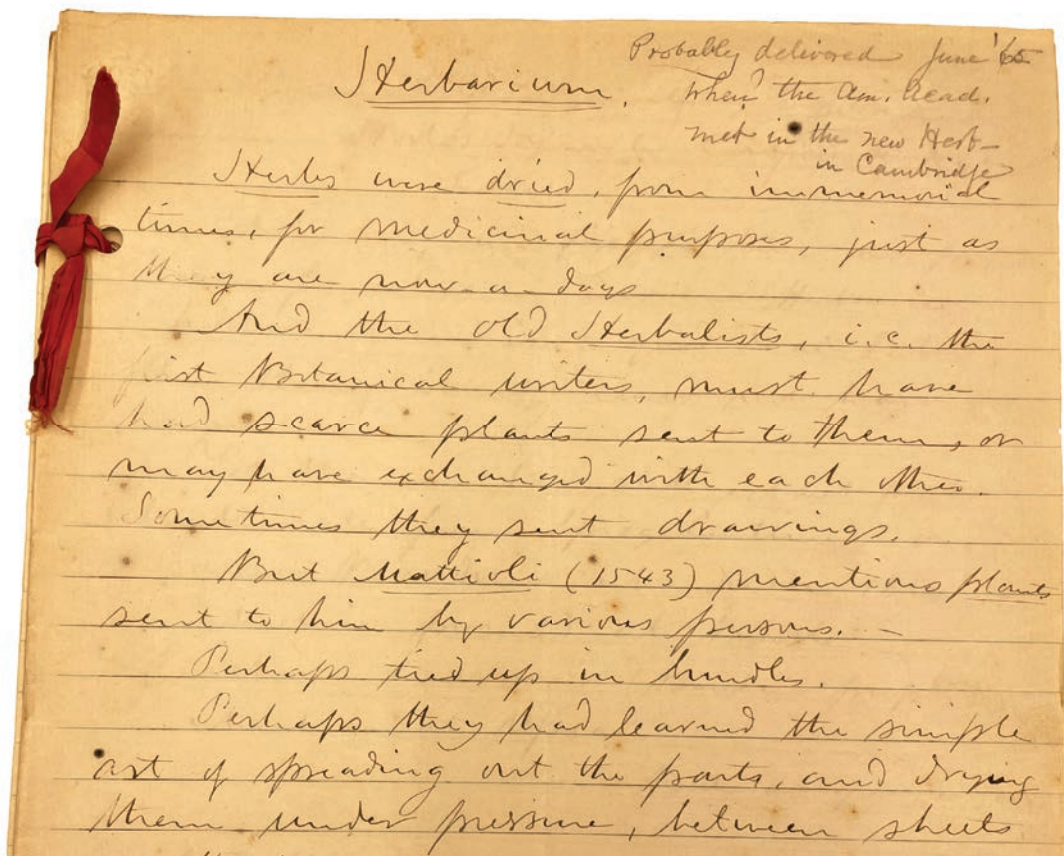 Herbarium.
Probably delivered June '65
when the Am. Acad.
met in the new Herb-
in Cambridge
Herbs were dried, from immemorial
times, for medicinal purposes, just as
they are now-a-days
And the old Herbalists, i.e. the
first Botanical writers, must have
had scarce plants sent to them, or
may have exchanged with each other.
Sometimes they sent drawings.
But Mattioli (1543) mentions plants
sent to him by various persons. –
Perhaps tied up in bundles.
Perhaps they had learned the simple
art of spreading out the parts, and drying
them under pressure, between sheets